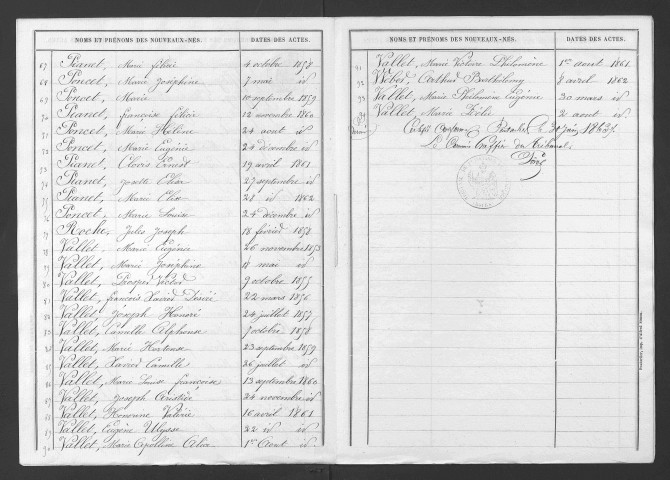 NOMS ET PRÉNOMS DES NOUVEAUX-NÉS. DATES DES ACTES.
67 Pianet, Marie félicie 4 octobre 1858
68 Poncet, Marie Joséphine 7 mai id
69 Poncet, Marie 10 septembre 1859
70 Pianet, françoise félicie 12 novembre 1860
71 Poncet, Marie Hélène 24 aout id
72 Poncet, Marie Eugénie 24 décembre id
73 Pianet, Clovis Ernest 19 avril 1861
74 Pianet, Joseph 27 septembre id
75 Pianet, Marie Elise 21 id 1862
76 Poncet, Marie Louise 24 décembre id
77 Roche, Jules Joseph 18 février 1858
78 Vallet, Marie Eugénie 26 novembre 1853
79 Vallet, Marie Joséphine 4 mai id
80 Vallet, Prosper Victor 9 octobre 1855
81 Vallet, françois Xavier Désiré 22 mars 1856
82 Vallet, Joseph Honoré 24 juillet 1857
83 Vallet, Camille Alphonse 7 octobre 1858
84 Vallet, Marie Hortense 23 septembre 1859
85 Vallet, Xavier Camille 26 juillet id
86 Vallet, Marie Louise françoise 13 septembre 1860
87 Vallet, Joseph 24 novembre id
88 Vallet, Honorine Valérie 16 avril 1861
89 Vallet, Eugène Ulysse 22 id id
90 Vallet, Marie Apolline Alice 1er Aout id
NOMS ET PRÉNOMS DES NOUVEAUX-NÉS. DATES DES ACTES.
91 Vallet, Marie Victoire Philomène 1er aout 1861
92 Weber, Arthur Barthelemy 8 avril 1862
93 Vallet, Marie Philomène Eugénie 30 mars id
94 Vallet, Marie Zéolie 2 aout id
Certifié Conforme Pontarlier le 30 juin 1863
Le Commis Greffier du Tribunal